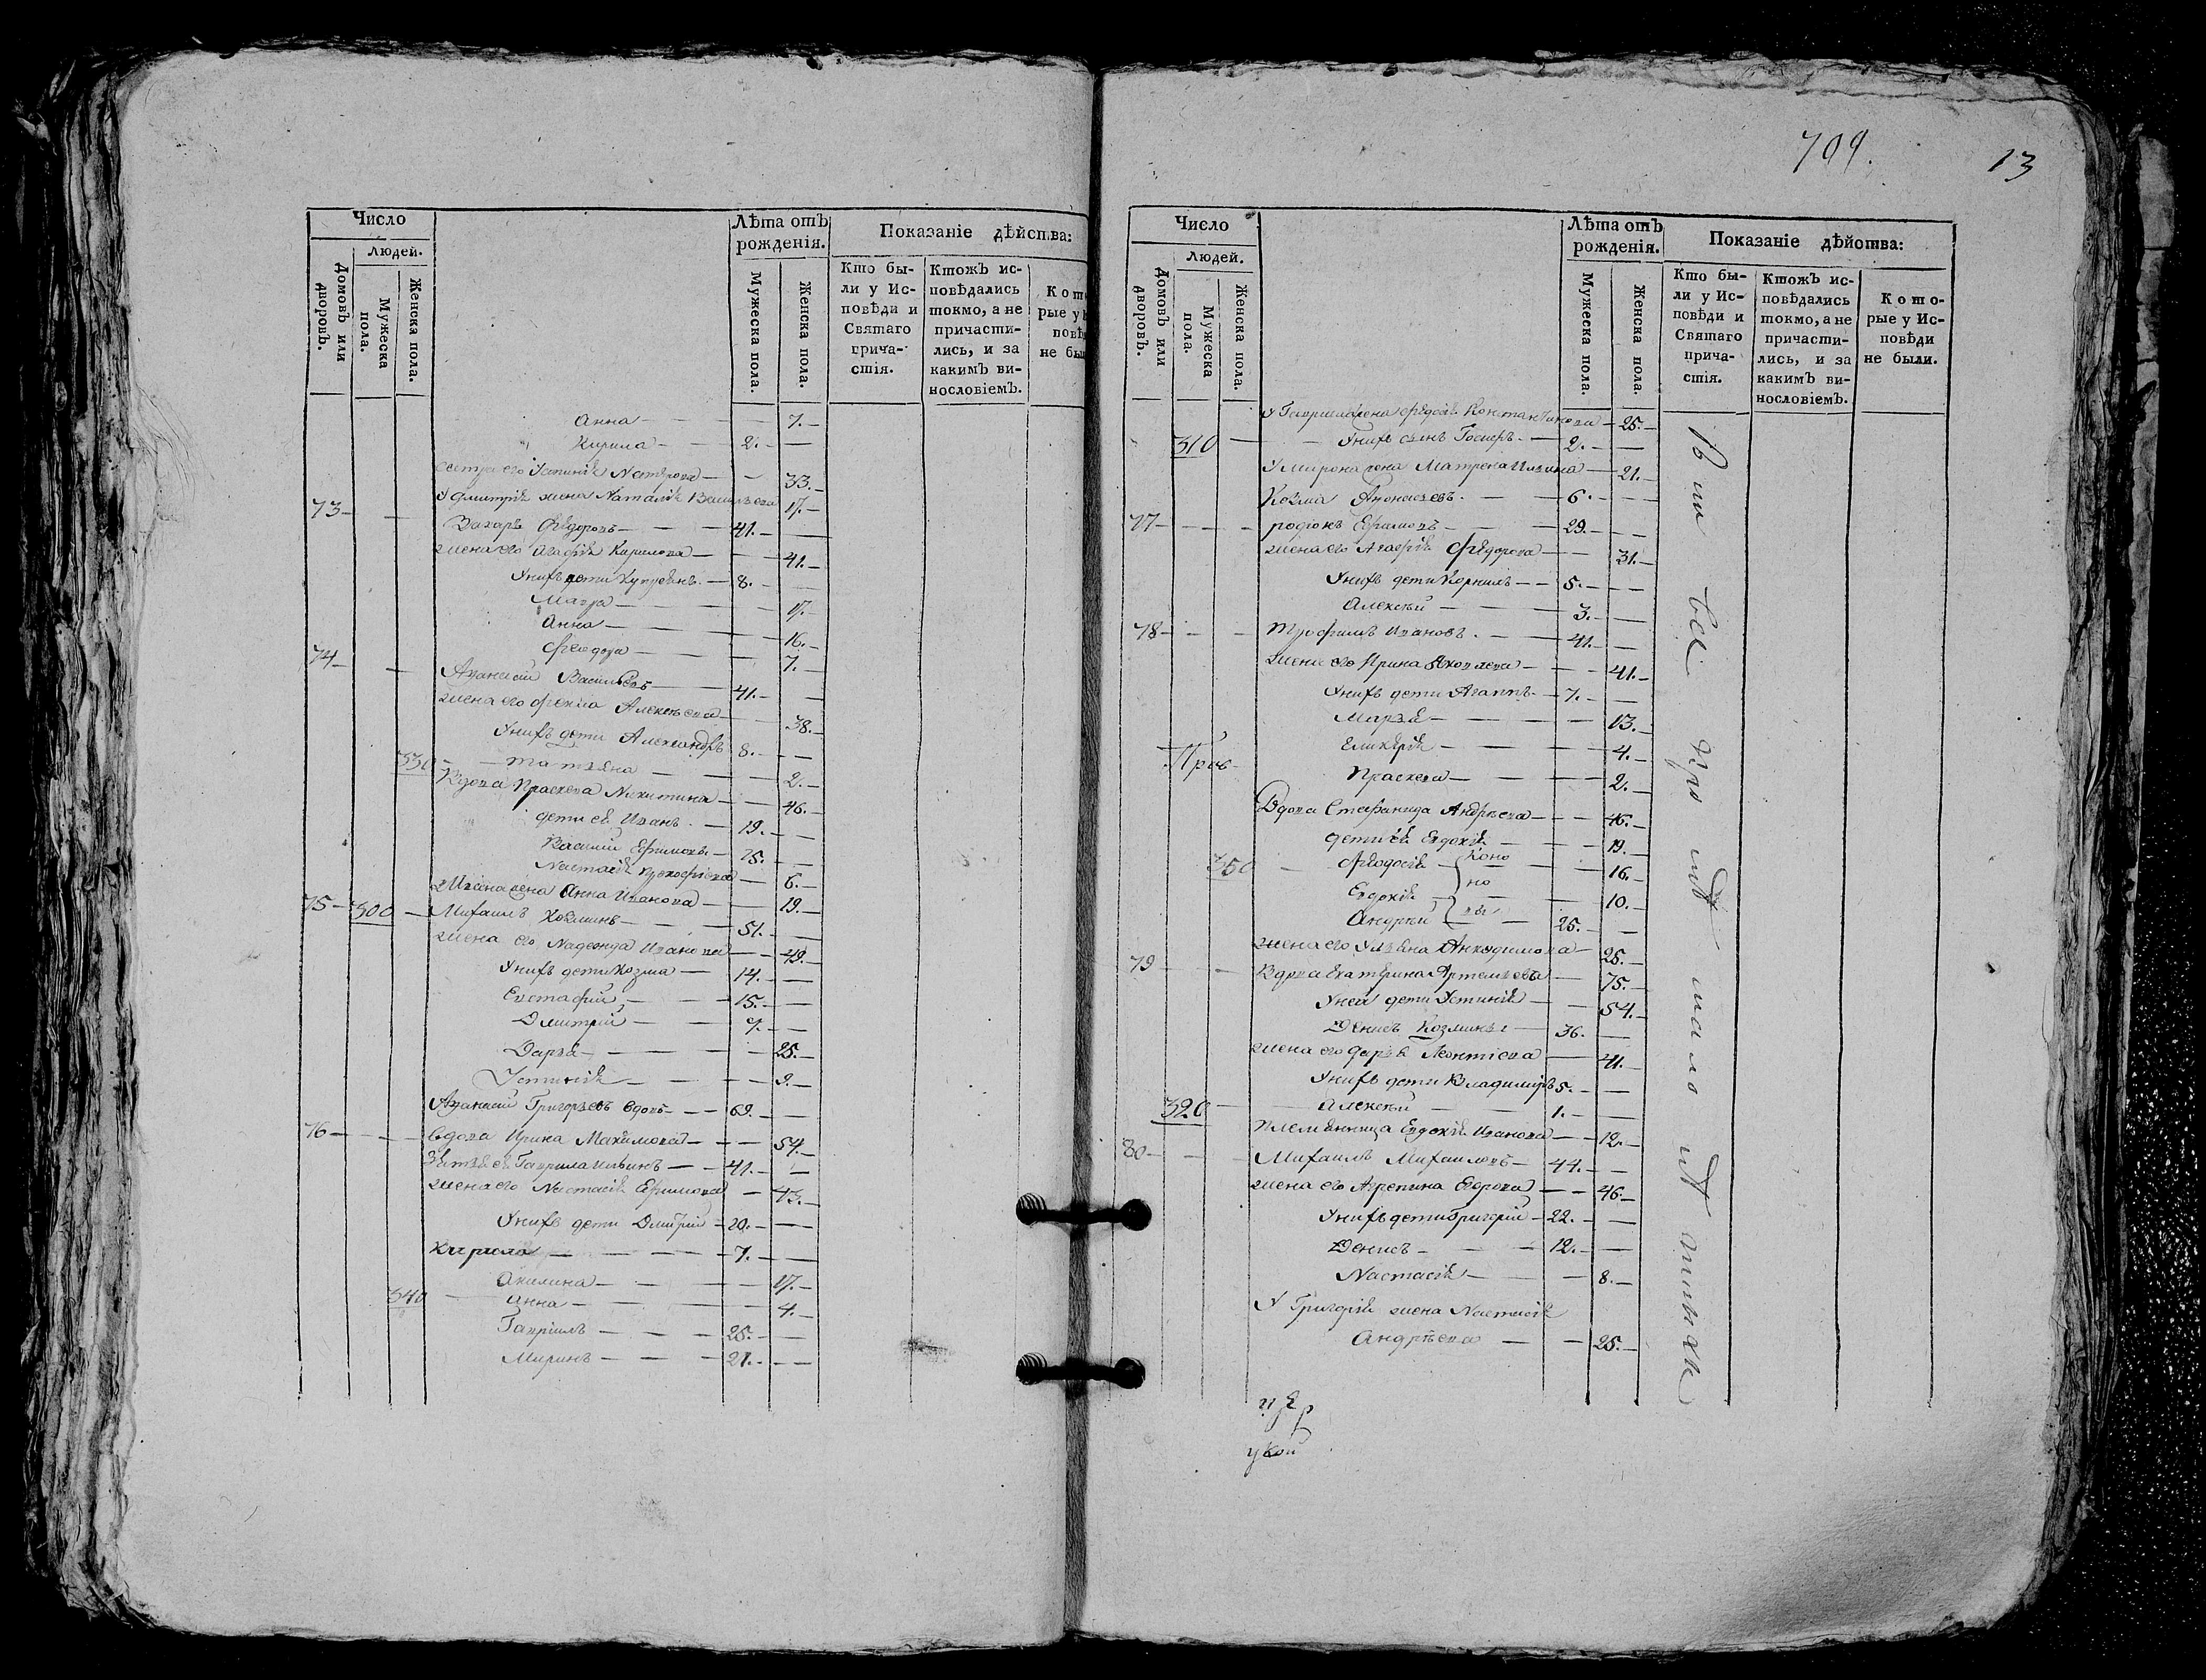 Число
Людей.
Домовъ или дворовъ.
Мужеска пола.
Женска пола.
Лѣта отъ рожденія.
Мужеска пола.
Женска пола.
Показаніе дѣйства:
Кто бы-
ли у Ис-
повѣди и
Святаго
прича-
стія.
Ктожъ ис-
повѣдались
токмо, а не
причасти-
лись, и за
какимъ ви-
нословіемъ.
Кот
рые у
повѣ
не бы
Анна — 7.
Кирила — 2.
сестра его Устинія Петрова — 33.
У Дмитрія жена Наталія Васильева 17.
73 Захаръ Ѳедоровъ — 41.
жена его Агафія Кирилова — 41.
У нихъ дети Купреянъ — 8.
Мавра — 17.
Анна — 16.
Феодора — 7.
74 Аѳанасій Васильевъ — 41.
жена его Фекла Алексѣева — 38.
У нихъ дети Александръ 8.
330 Татіяна — 2.
Вдова Праскева Никитина — 46.
дети ея Иванъ — 19.
Василій Ефимовы — 25.
Настасія — 6.
жена Анна Иванова — 19.
75 300 Михаилъ Козминъ — 51.
жена его Надежда Иванова — 49.
У нихъ дети Козма — 14.
Евстафій — 15.
Дмитрій — 9.
Дарья — 25.
Устинія — 9.
Аѳанасій Григорьевъ вдовъ — 69.
76 вдова Ирина Махимова — 54.
Зять ея Гаврила Ильинъ — 41.
жена его Настасія Ефимова — 43.
У нихъ дети Дмитрій — 20.
Кирила — 7.
Акилина — 17.
340 Анна — 4.
Гавріилъ — 25.
Миронъ — 21.
709.
13
Число
Людей.
Домовъ или дворовъ.
Мужеска пола.
Женска пола.
Лѣта отъ рожденія.
Мужеска пола.
Женска пола.
Показаніе дѣйства:
Кто бы-
ли у Ис-
повѣди и
Святаго
прича-
стія.
Ктожъ ис-
повѣдались
токмо, а не
причасти-
лись, и за
какимъ ви-
нословіемъ.
Кото-
рые у Ис-
повѣди
не были.
У Гавриила жена Федосія Константинова — 25.
310 У нихъ сынъ — 2.
У Мирона жена Матрена Ильина — 21.
Козма Аѳонасьевъ — 6.
77 родіонъ Ефимовъ — 29.
жена его Агафія Ѳедорова — 31.
У нихъ дети Корнилъ — 5.
Алексѣй — 3.
78 Трофимъ Ивановъ — 41.
жена его Ирина Яковлева — 41.
У нихъ дети Агаппъ — 7.
Марья — 13.
Гликерія — 4.
Праскева — 2.
Вдова Стефанида Андреева — 46.
дети ея Евдокія — 19.
350 Ѳеодосія — 16.
Евдокія — 10.
Андрей — 25.
Коно
но
вы
жена его Ульяна Анкудимова — 25.
79 Вдова Екатерина Артемьева — 75.
У ней дети Устинія — 54.
Денисъ Козмины — 36.
жена его Дарья Леонтіева — 41.
У нихъ дети Владиміръ 5.
320 Алексѣй — 1.
Племянница Евдокія Иванова — 12.
80 Михаилъ Михаиловъ — 44.
жена его Агрепина Егорова — 46.
У нихъ дети Григорій — 22.
Денисъ — 12.
Настасія — 8.
У Григорія жена Настасія
Андрѣева — 25.